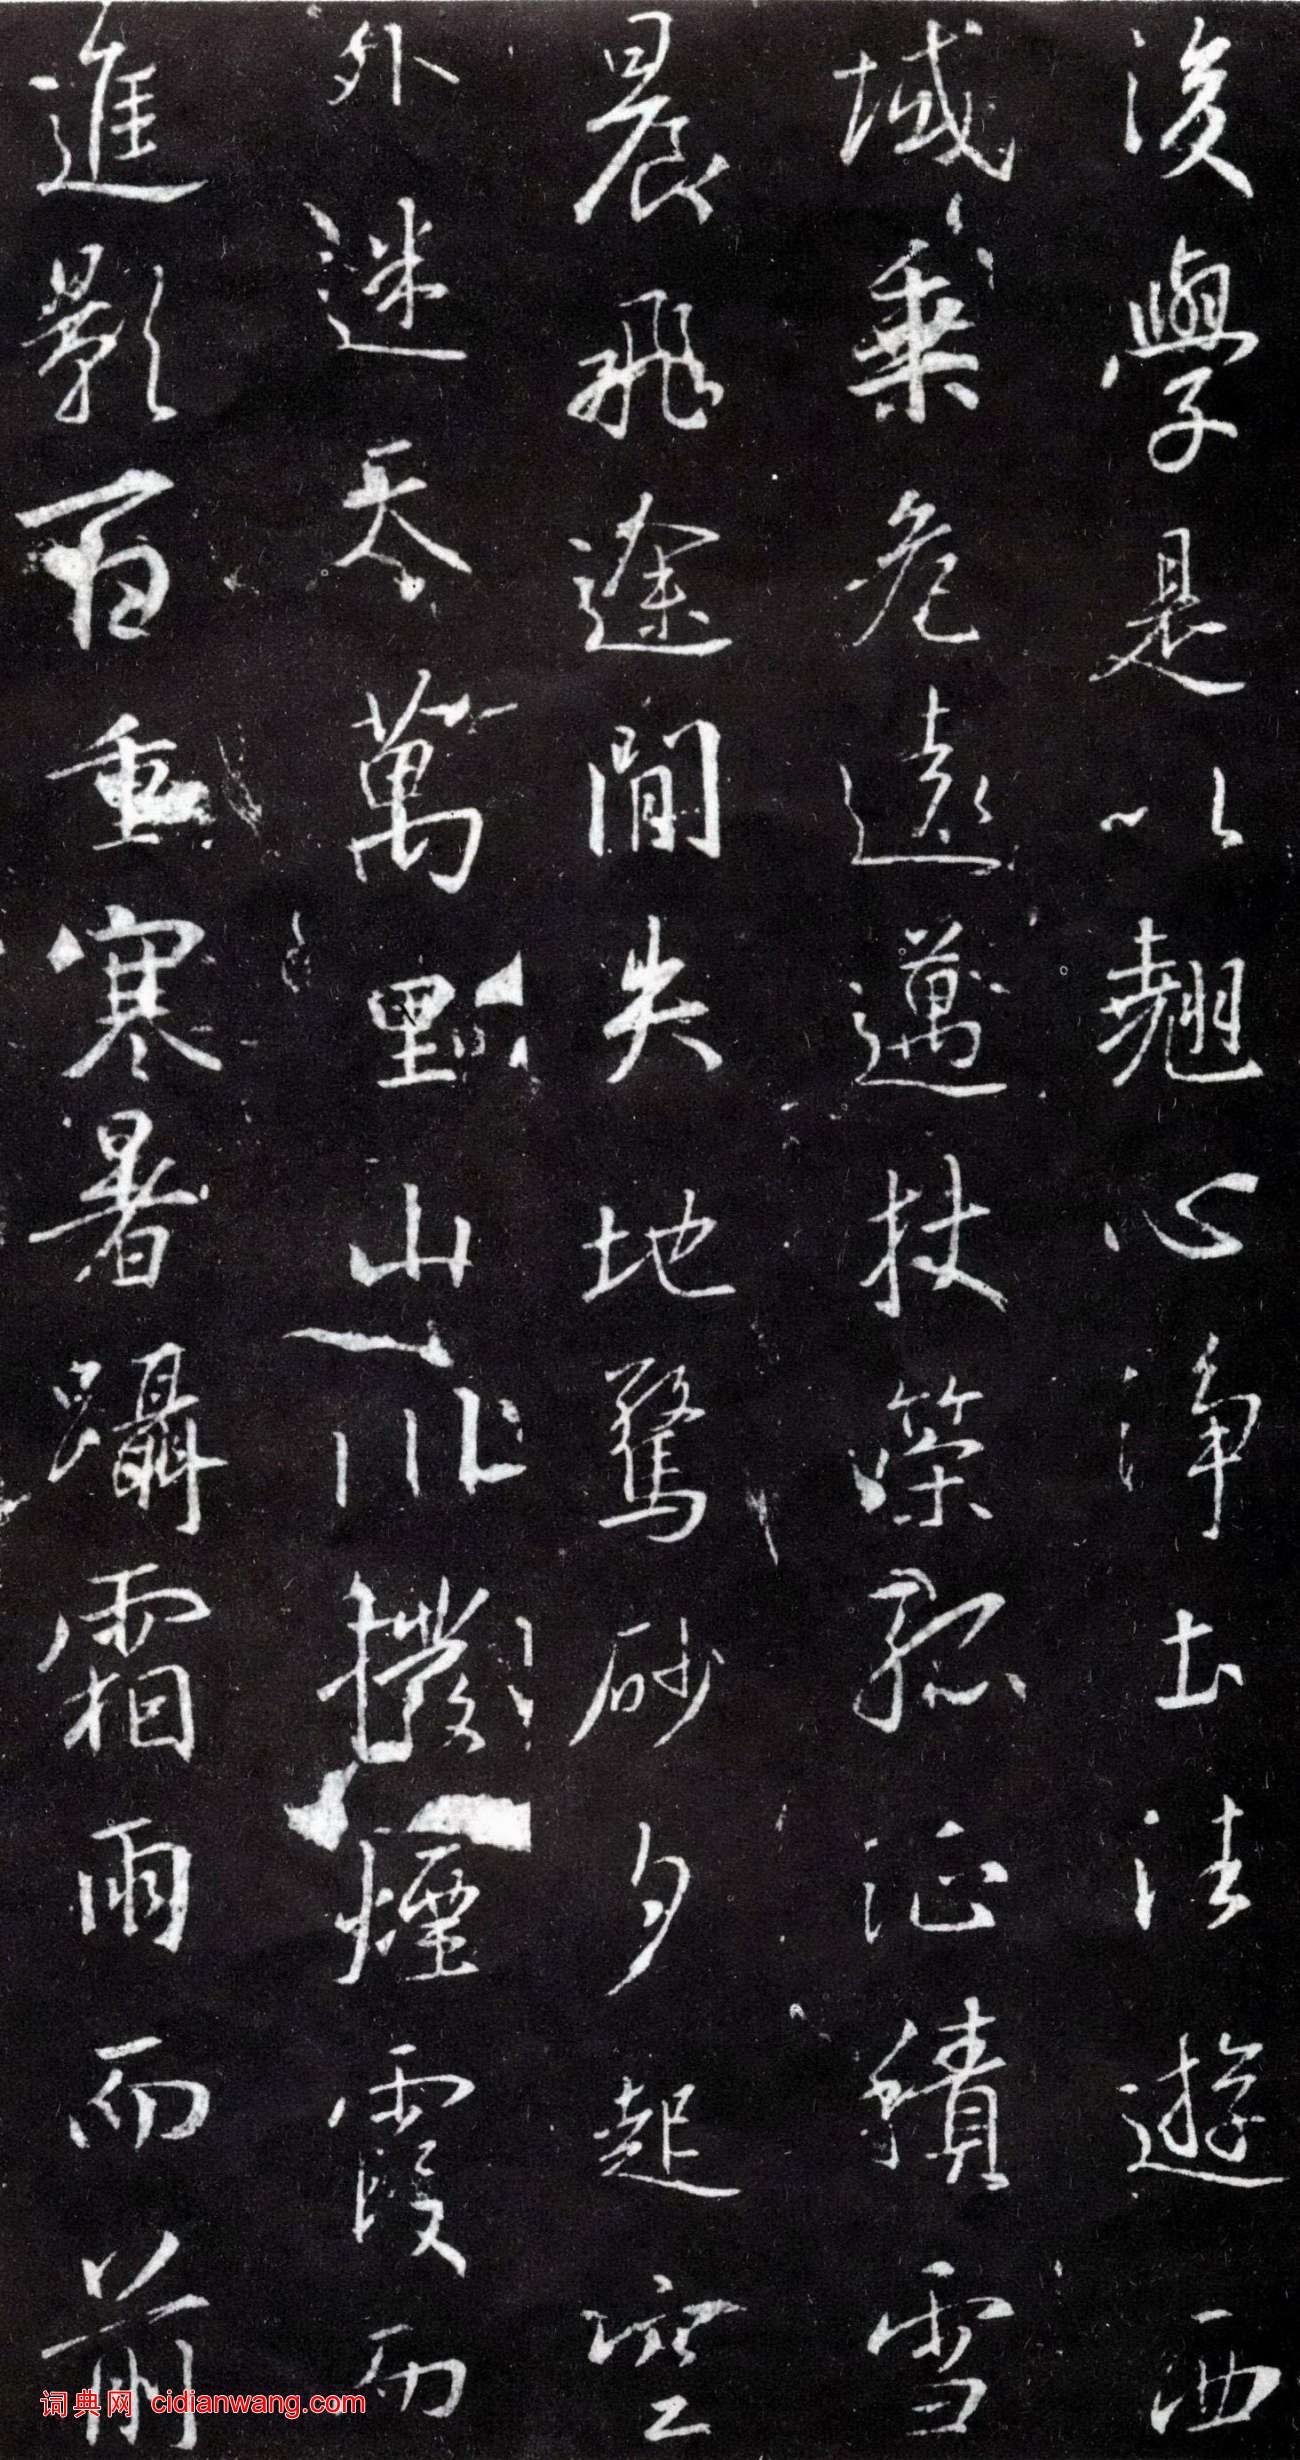 後學是以翹心淨土法遊西
域乗危遠邁杖策孤征積雪
晨飛途間失地驚砂夕起空
外迷天萬里山川撥煙霞而
進影百重寒暑躡霜雨而前
词典网 cidianwang.com